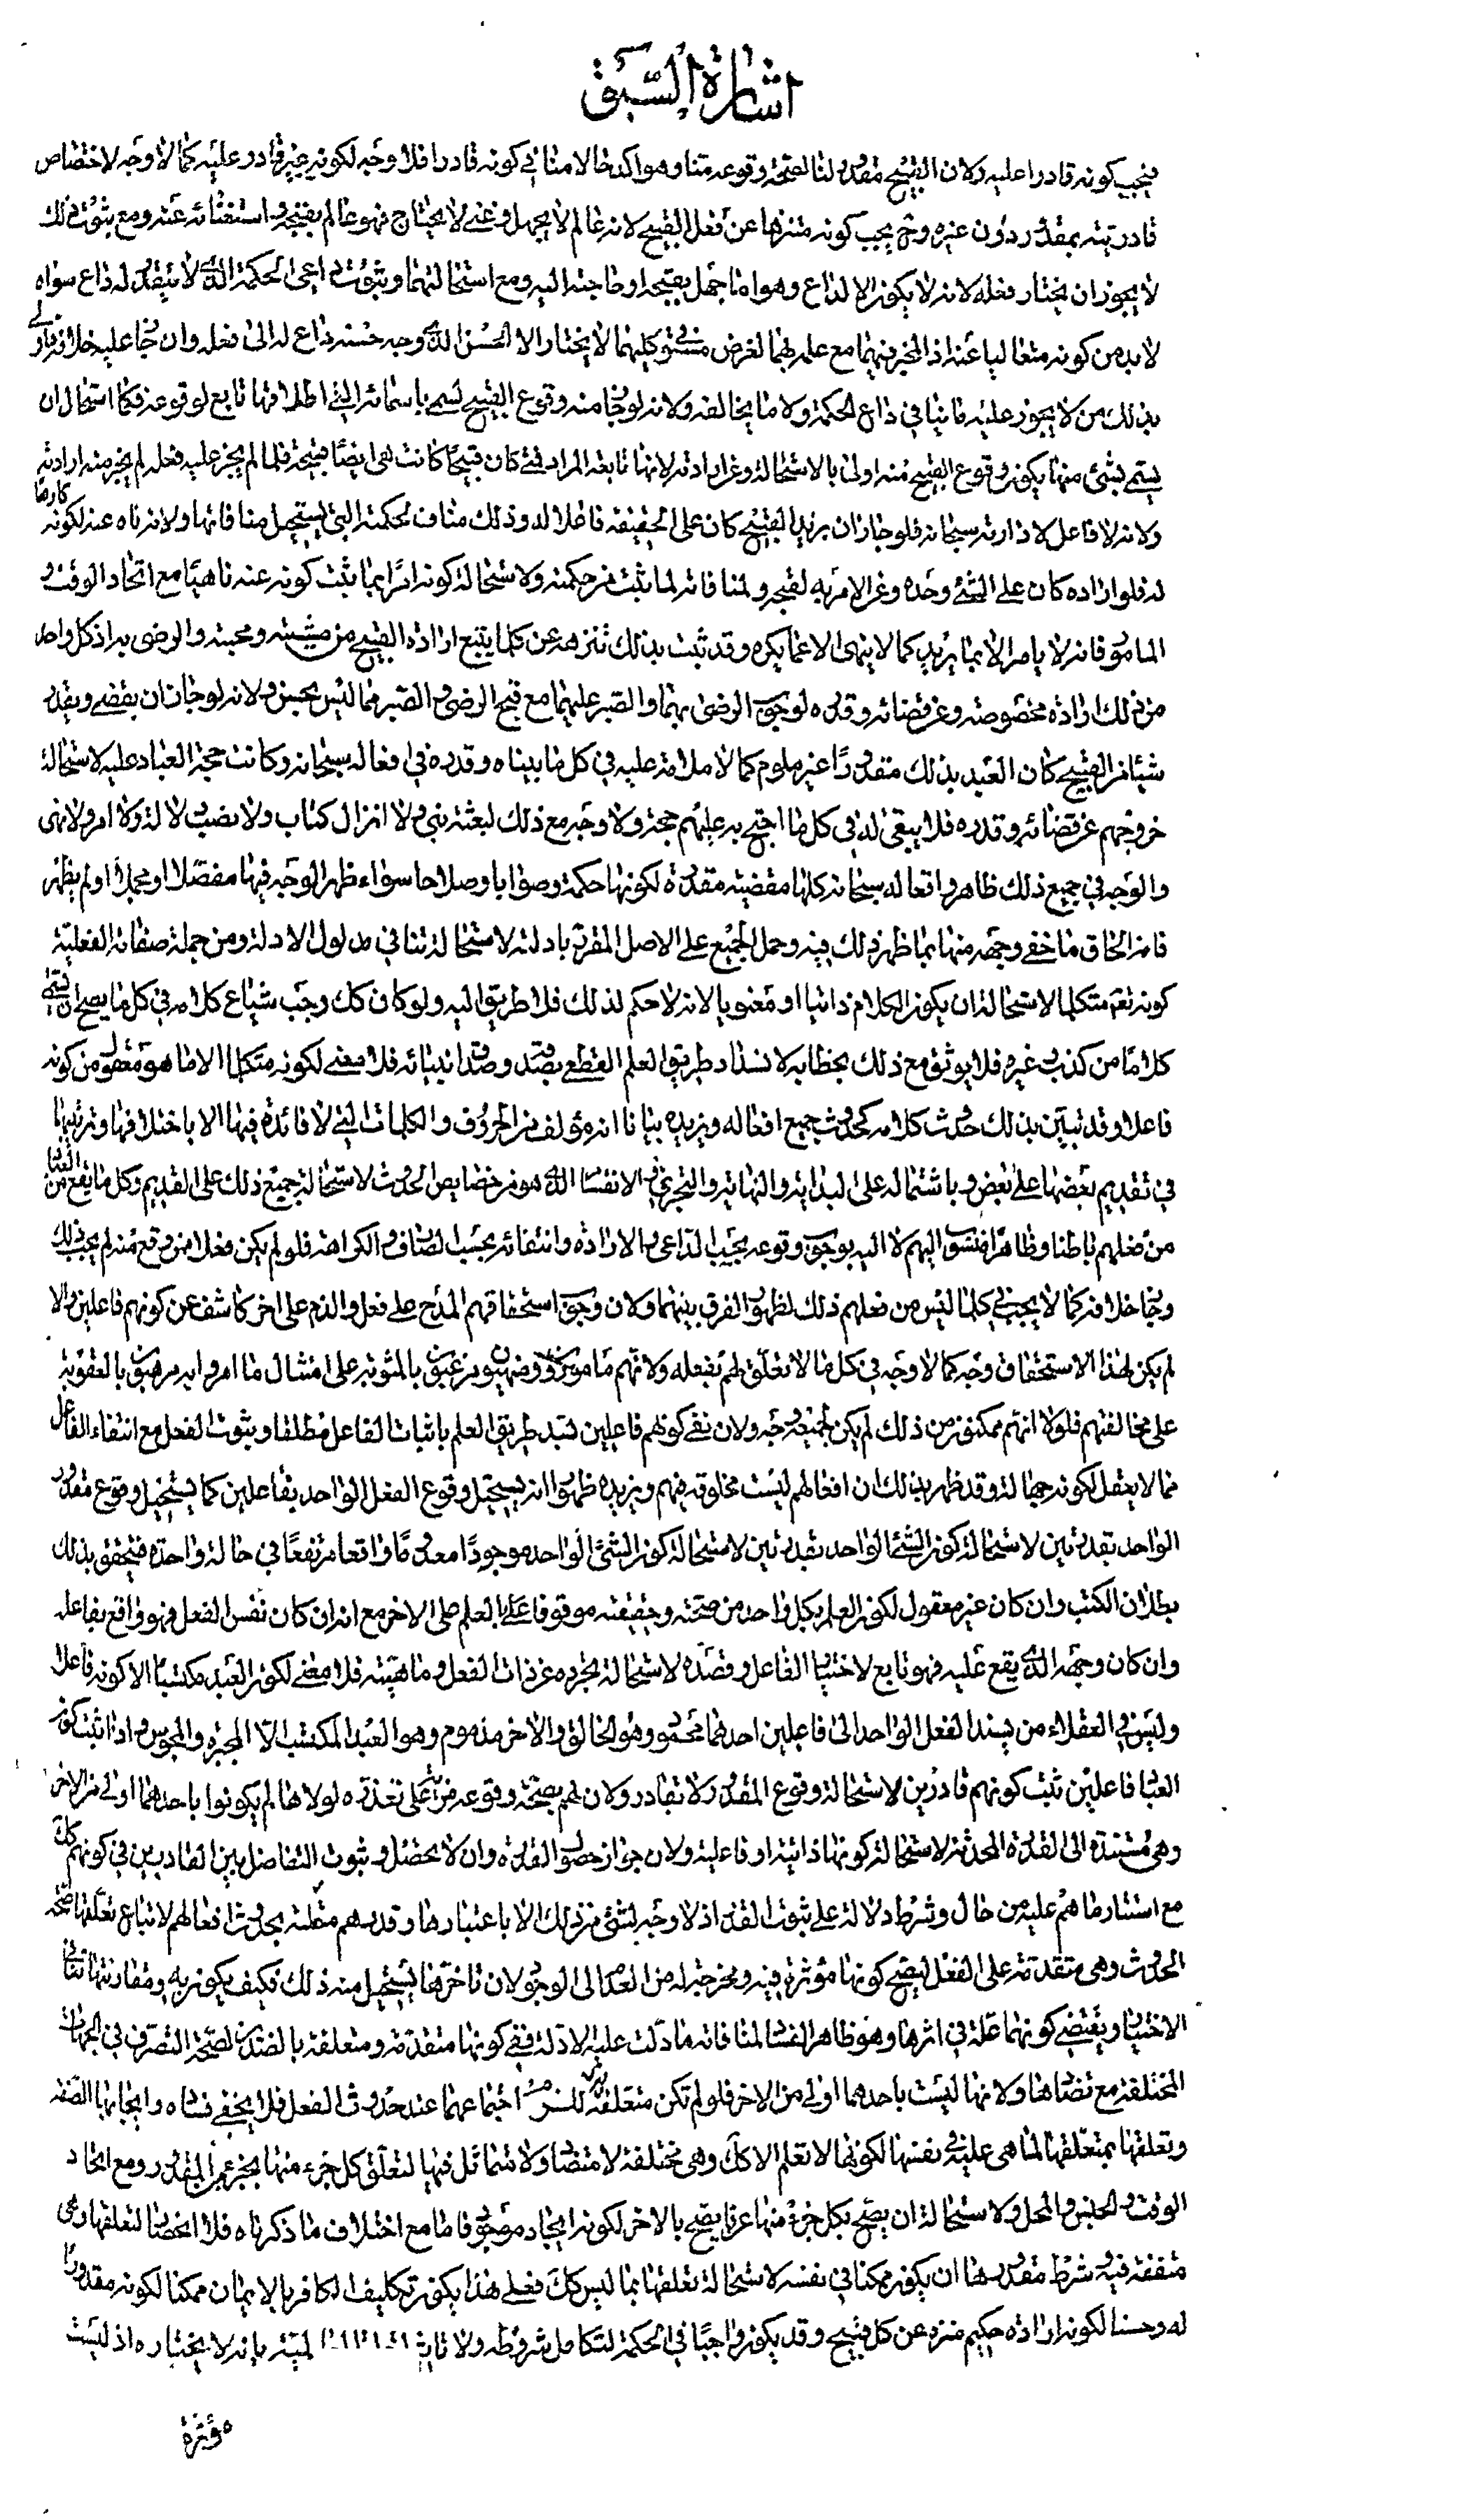 اشارة السبق
فيجب كونه قادرا عليه ولان القبيح مقدور لنا لصحة وقوعه منا وهو اكد حالا منا في كونه قادرا فلا وجه لكونه غير قادر عليه كما لا وجه لاختصاص
قادريته بمقدور دون غيره وح يجب كونه متنزها عن فعل القبيح لانه عالم لا يجهل وغني لا يحتاج فهو عالم بقبحه واستغنائه عنه ومع ثبوت ذلك
لا يجوز ان يختار فعله لانه لا يكون الا لداع وهو اما جهل بقبحه او حاجته اليه ومع استحالتهما وثبوت داعي الحكمة الذي لا يتقدر له داع سواه
لا بد من كونه متعاليا عنه اذ المخير بينهما مع علمه بهما لغرض يستوي كليهما لا يختار الا الحسن الذي وجه حسنه داع له الى فعله وان جاء عليه خلافه
بذلك من لا يجوز عليه فانيا في داع الحكمة ولا ما يخالفه ولانه لو جاز منه وقوع القبيح لسمي باسمائه التي اطلاقها تابع لوقوعه فكما استحال ان
يسمى بشئ منها يكون وقوع القبيح منه اولى بالاستحالة وعن ارادته لانها تابعة المراد فمتى كان قبيحا كانت هي ايضا قبيحة فلما لم يجز عليه فعله لم يجز منه ارادته
ولانه لا فاعل لارادته سبحانه فلو جاز ان يريد القبيح كان على الحقيقة فاعلا له وذلك مناف لحكمته التي يستحيل منافاتها ولانه ناه عنه لكونه كارها
له فلو اراده كان على الشئ وحده وعن الامر به لقبحه ولمنافاته لما ثبت من حكمته ولاستحالة كونه امرا بما ثبت كونه عنه ناهيا مع اتحاد الوقت و
المامور فانه لا يامر الا بما يريد كما لا ينهى الا عما يكره وقد ثبت بذلك تنزهه عن كلما يتبع ارادة القبيح من مشيته ومحبته والرضى به اذ كل واحد
من ذلك ارادة مخصوصة وعن قضائه وقدره لوجوب الرضى بهما والصبر عليهما مع قبح الرضى والصبر مما ليس بحسن ولانه لو جاز ان يقضي ويقدر
شيئا من القبيح كان العبد بذلك معذورا غير ملوم كما لا ملامة عليه في كل ما بيناه وقدره في افعاله سبحانه وكانت حجة العباد عليه لاستحالة
خروجهم عن قضائه وقدره فلا يبقى له في كل ما احتج به عليهم حجة ولا وجه مع ذلك لبعثة نبي ولا انزال كتاب ولا نصب دلالة ولا امر ولا نهي
والوجه في جميع ذلك ظاهر وافعاله سبحانه كلها مقضية مقدرة لكونها حكمة وصوابا وصلاحا سواء ظهر الوجه فيها مفصلا او مجملا او لم يظهر
فانه الحاق ما خفي وجهه منها بما ظهر ذلك فيه وحمل الجميع على الاصل المقرر بادلته لاستحالة تنافي مدلول الادلة ومن جملة صفاته الفعلية
كونه تعم متكلما لاستحالة ان يكون الكلام ذاتيا او معنويا لانه لا حكم لذلك فلا طريق اليه ولو كان كك وجب شياع كلامه في كل ما يصح ان يسمى
كلاما من كذب وغيره فلا يوثق مع ذلك بخطابه لانسداد طريق العلم القطعي بصدقه وصدق انبيائه فلا معنى لكونه متكلما الا ما هو معقول من كونه
فاعلا وقد تبين بذلك حدث كلامه كحدوث جميع افعاله ويزيده بيانا انه مؤلف من الحروف والكلمات التي لا فائدة فيها الا باختلافها وترتيبها
في تقديم بعضها على بعض وباشتماله على البداية والنهاية والتجزي والانقسام الذي هو من خصايص الحدوث لاستحالة جميع ذلك على القديم وكل ما يقع من العباد
من فعلهم باطنا وظاهرا فمنسوب اليهم لا اليه بوجوب وقوعه بحسب الداعي والارادة وانتفائه بحسب الصارف والكراهة فلو لم يكن فعلا من وقع منه لم يجب ذلك
وجاء خلافه كما لا يجب في كلما ليس من فعلهم ذلك لظهور الفرق بينهما ولان وجوب استحقاقهم المدح على فعل والذم على اخر كاشف عن كونهم فاعلين والا
لم يكن لهذا الاستحقاق وجه كما لا وجه في كل ما لا تعلق لهم بفعله ولانهم مامورون ومنهيون ومرغبون بالمثوبة على امتثال ما امروا به مرهبون بالعقوبة
على مخالفتهم فلولا انهم ممكنون من ذلك لم يكن لجميعه وجه ولان نفي كونهم فاعلين يسد طريق العلم باثبات الفاعل مطلقا وثبوت الفعل مع انتفاء الفاعل
مما لا يعقل لكونه جهالة وقد ظهر بذلك ان افعالهم ليست مخلوقة فيهم ويزيده ظهورا انه يستحيل وقوع الفعل الواحد بفاعلين كما يستحيل وقوع مقدور
الواحد بقدرتين لاستحالة كون الشئ الواحد بقدرتين لاستحالة كون الشئ الواحد موجودا معدوما واقعا مرتفعا في حالة واحدة فيتحقق بذلك
بطلان الكسب وان كان غير معقول لكون العلم بكل واحد من صحته وحقيقته موقوفا على العلم على الاخر مع انه ان كان نفس الفعل فهو واقع بفاعله
وان كان وجهه الذي يقع عليه فهو تابع لاختيار الفاعل وقصده لاستحالة تجرده عن ذات الفعل وماهيته فلا معنى لكون العبد مكتسبا الا كونه فاعلا
وليس في العقلاء من يسند الفعل الواحد الى فاعلين احدهما محمود وهو الخالق والاخر مذموم وهو العبد المكتسب الا المجبره والمجوس واذا ثبت كون
العباد فاعلين ثبت كونهم قادرين لاستحالة وقوع المقدور لا بقادر ولان لهم بصحة وقوعه مزية على تعذره لولاها لم يكونوا باحدهما اولى من الاخر
وهي مستندة الى القدرة المحدثة لاستحالة كونها ذاتية او فاعلية ولان جواز حصول القدرة وان لا تحصل وثبوت التفاضل بين القادرين في كونهم كك
مع استتار ما هم عليه من حال وشرط دلالة على ثبوت القدر اذ لا وجه لشئ من ذلك الا باعتبارها وقدرهم متعلقة بحدوث افعالهم لاتباع تعلقها صحة
الحدوث وهي متقدمة على الفعل ليصح كونها مؤثرة فيه ومخرجة له من العدم الى الوجود ولان تاخرها يستحيل منه ذلك فكيف يكون به ومقارنتها تنافي
الاختيار ويقتضي كونها علة في اثرها وهو ظاهر الفساد لمنافاته ما دلت عليه الادلة ففي كونها متقدمة ومتعلقة بالضدين لصحة التصرف في الجهات
المختلفة مع تضادها ولانها ليست باحدهما اولى من الاخر فلو لم تكن متعلقة اجتماعهما عند حدوث الفعل فلا يخفى فساده وايجابها الصفة
وتعلقها بمتعلقها لما هي عليه في نفسها لكونها لا تعلم الا كك وهي مختلفة لا متضادة ولا تماثل فيها لتعلق كل جزء منها بجزء من المقدور ومع اتحاد
الوقت والجنس والمحل ولاستحالة ان يصح بكل جزء منها عين ما يصح بالاخر لكونه ايجاد موجود فاما مع اختلاف ما ذكرناه فلا انحصار لتعلقها وهي
متفقة فيه وشرط مقدورها ان يكون ممكنا في نفسه لاستحالة تعلقها بما ليس كك فعلى هذا يكون تكليف الكافر بالايمان ممكنا لكونه مقدورا
له وحسنا لكونه ارادة حكيم منزه عن كل قبيح وقد يكون واجبا في الحكمة لتكامل شروطه ولا تاثير بانه لا يختاره اذ ليست